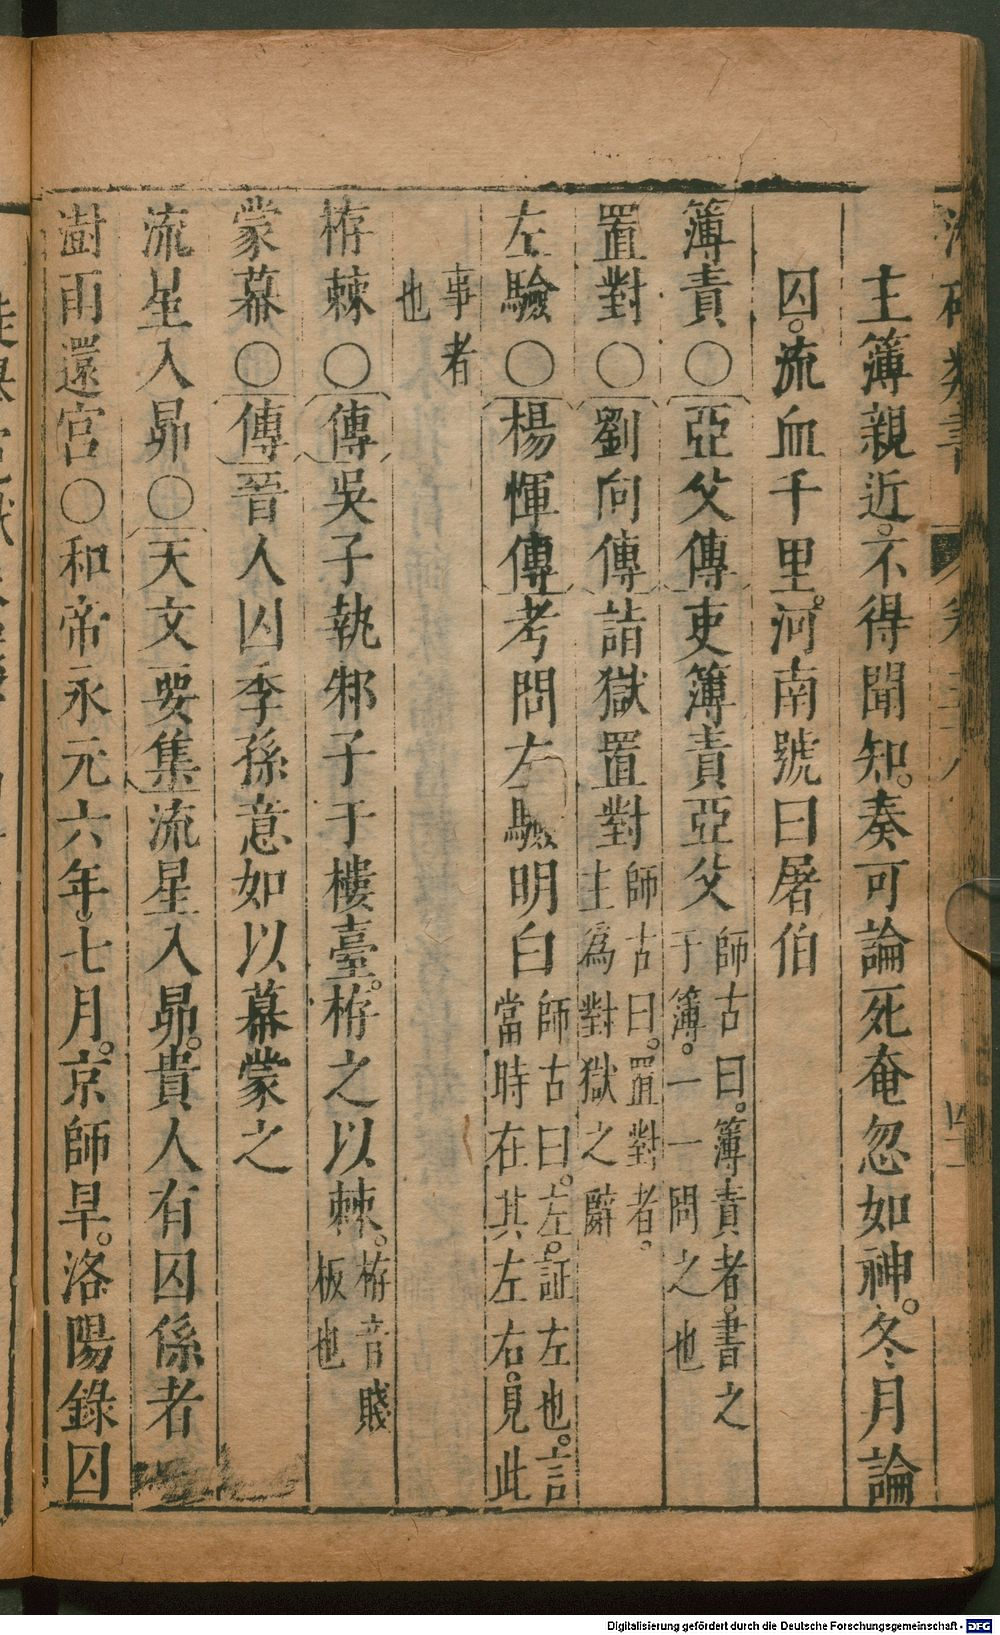 主簿親近。不得聞知。奏可論死奄忽如神。冬月論
囚。流血千里。河南號曰屠伯
簿責〇亞父傳吏簿責亞父師古曰。簿責者。書之于簿。一一問之也
置對〇劉向傳詣獄置對師古曰。置對者。主為對獄之辭
左驗〇楊惲傳考問左驗明白師古曰。左。証左也。言當時在其左右。見此
事者也
栫棘〇傳吳子執邾子于樓臺。栫之以棘。栫音賤板也
蒙幕〇傳晉人囚季孫意如以幕蒙之
流星入昴〇天文要集流星入昴。貴人有囚係者
澍雨還宮〇和帝永元六年。七月。京師旱。洛陽錄囚
Digitalisierung gefördert durch die Deutsche Forschungsgemeinschaft - DFG